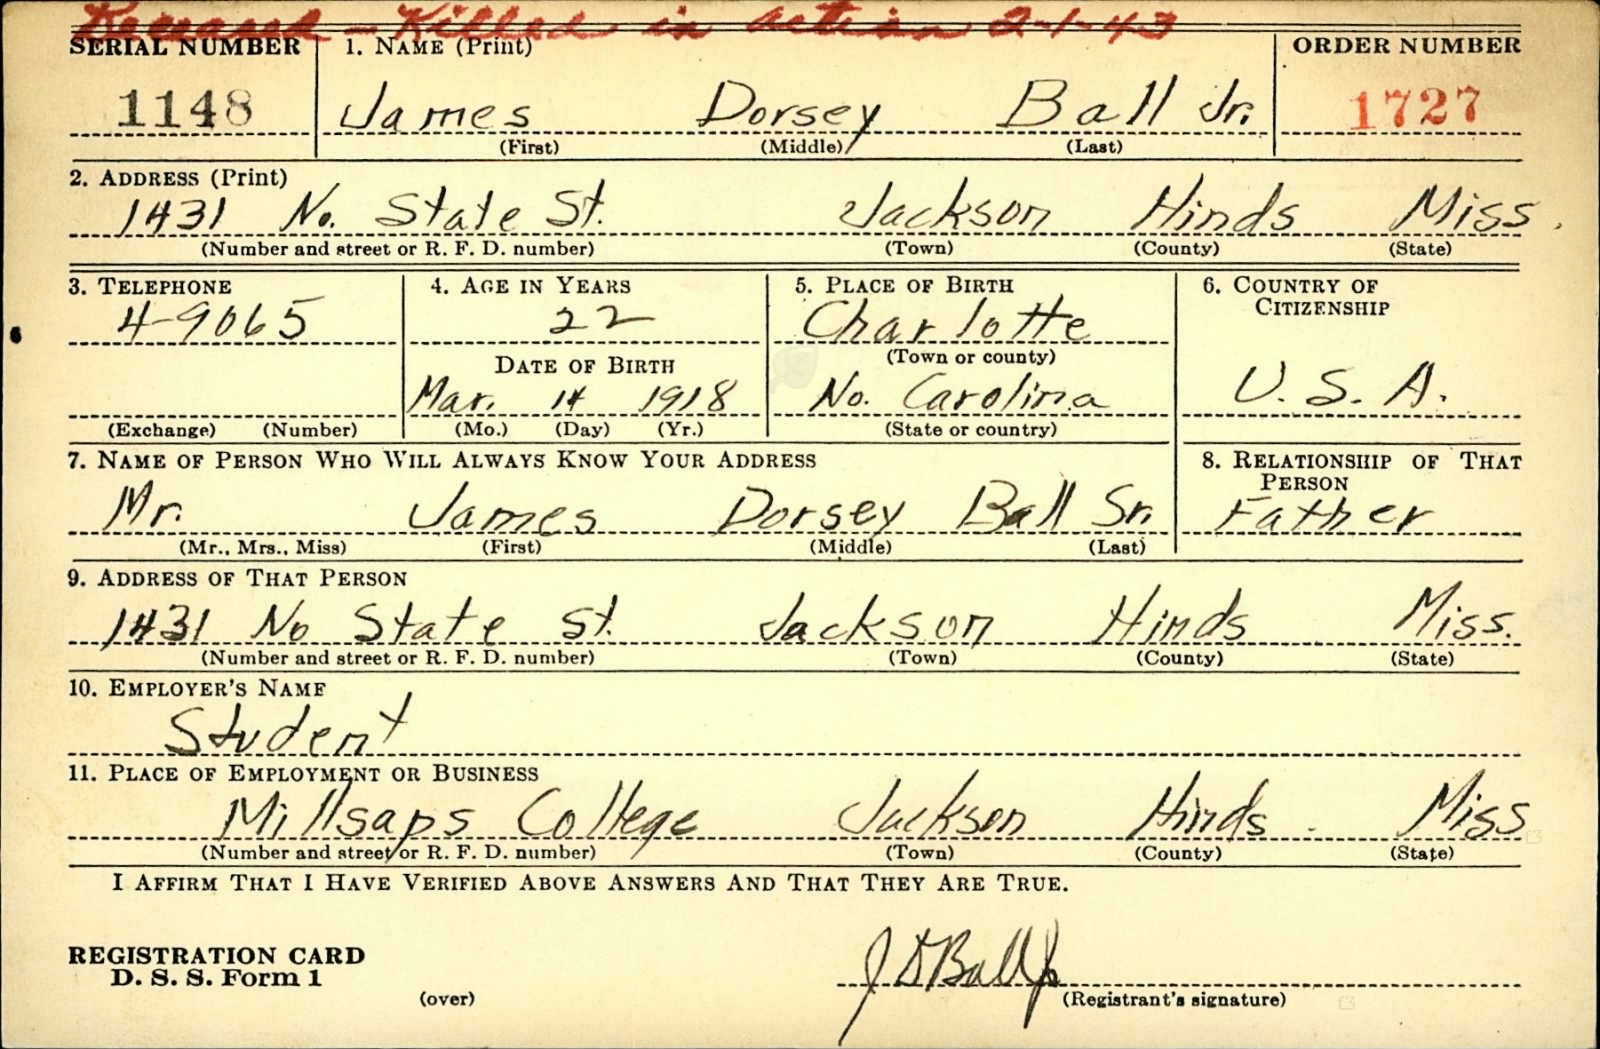 Deceased - Killed in action 2-1-43
SERIAL NUMBER 1. NAME (Print) ORDER NUMBER
1148 James Dorsey Ball Jr. 1727
(First) (Middle) (Last)
2. ADDRESS (Print)
1431 No. State St. Jackson Hinds Miss.
(Number and street or R. F. D. number) (Town) (County) (State)
3. TELEPHONE 4. AGE IN YEARS 5. PLACE OF BIRTH 6. COUNTRY OF
CITIZENSHIP
4-9065 22 Charlotte
(Town or county)
DATE OF BIRTH
Mar. 14 1918 No. Carolina U. S. A.
(Exchange) (Number) (Mo.) (Day) (Yr.) (State or country)
7. NAME OF PERSON WHO WILL ALWAYS KNOW YOUR ADDRESS 8. RELATIONSHIP OF THAT
PERSON
Mr. James Dorsey Ball Sr. Father
(Mr., Mrs., Miss) (First) (Middle) (Last)
9. ADDRESS OF THAT PERSON
1431 No State St. Jackson Hinds Miss.
(Number and street or R. F. D. number) (Town) (County) (State)
10. EMPLOYER'S NAME
Student
11. PLACE OF EMPLOYMENT OR BUSINESS
Millsaps College Jackson Hinds Miss
(Number and street or R. F. D. number) (Town) (County) (State)
I AFFIRM THAT I HAVE VERIFIED ABOVE ANSWERS AND THAT THEY ARE TRUE.
REGISTRATION CARD
D. S. S. Form 1 J D Ball Jr
(over) (Registrant's signature)